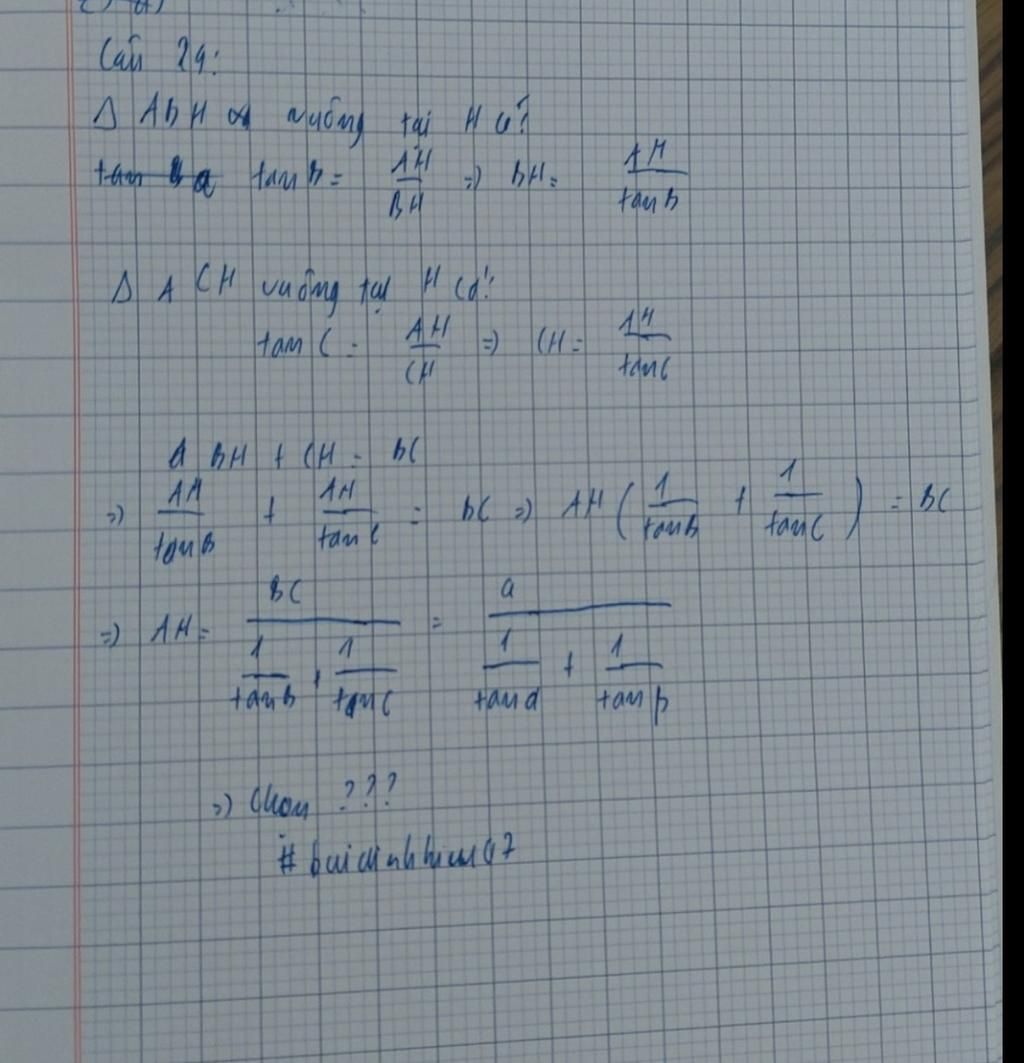 Câu 24:
Δ ABH vuông tại H có:
tan B = AH/BH => BH = AH/tan B
Δ ACH vuông tại H có:
tan C = AH/CH => CH = AH/tan C
BH + CH = BC
=> AH/tan B + AH/tan C = BC => AH (1/tan B + 1/tan C) = BC
=> AH = BC/(1/tan B + 1/tan C) = a/(1/tan α + 1/tan β)
=> Chọn ???